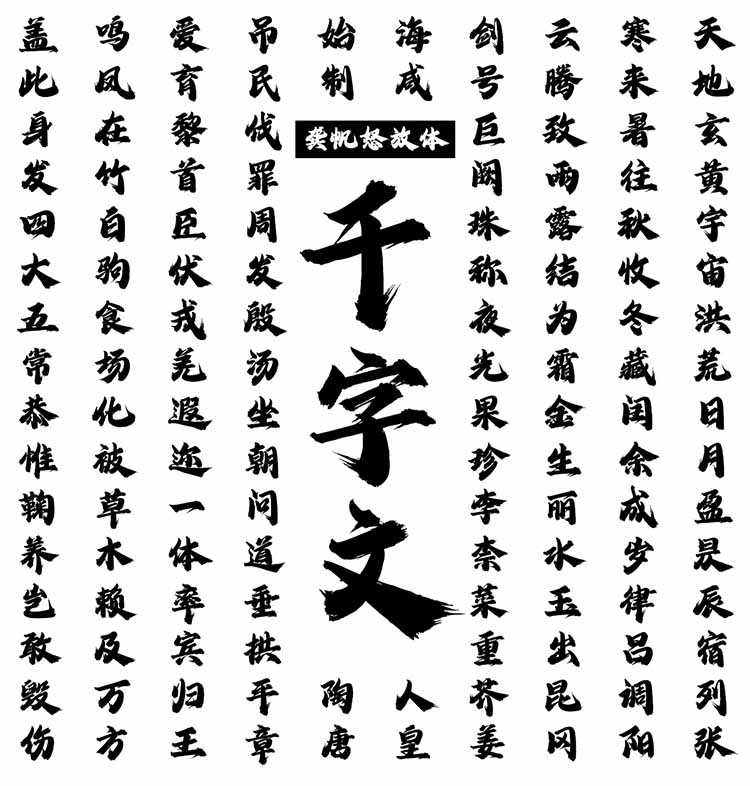 天地玄黄宇宙洪荒日月盈昃辰宿列张
寒来暑往秋收冬藏闰余成岁律吕调阳
云腾致雨露结为霜金生丽水玉出昆冈
剑号巨阙珠称夜光果珍李奈菜重芥姜
海咸
人皇
始制
陶唐
龚帆怒放体
千字文
吊民伐罪周发殷汤坐朝问道垂拱平章
爱育黎首臣伏戎羌遐迩一体率宾归王
鸣凤在竹白驹食场化被草木赖及万方
盖此身发四大五常恭惟鞠养岂敢毁伤